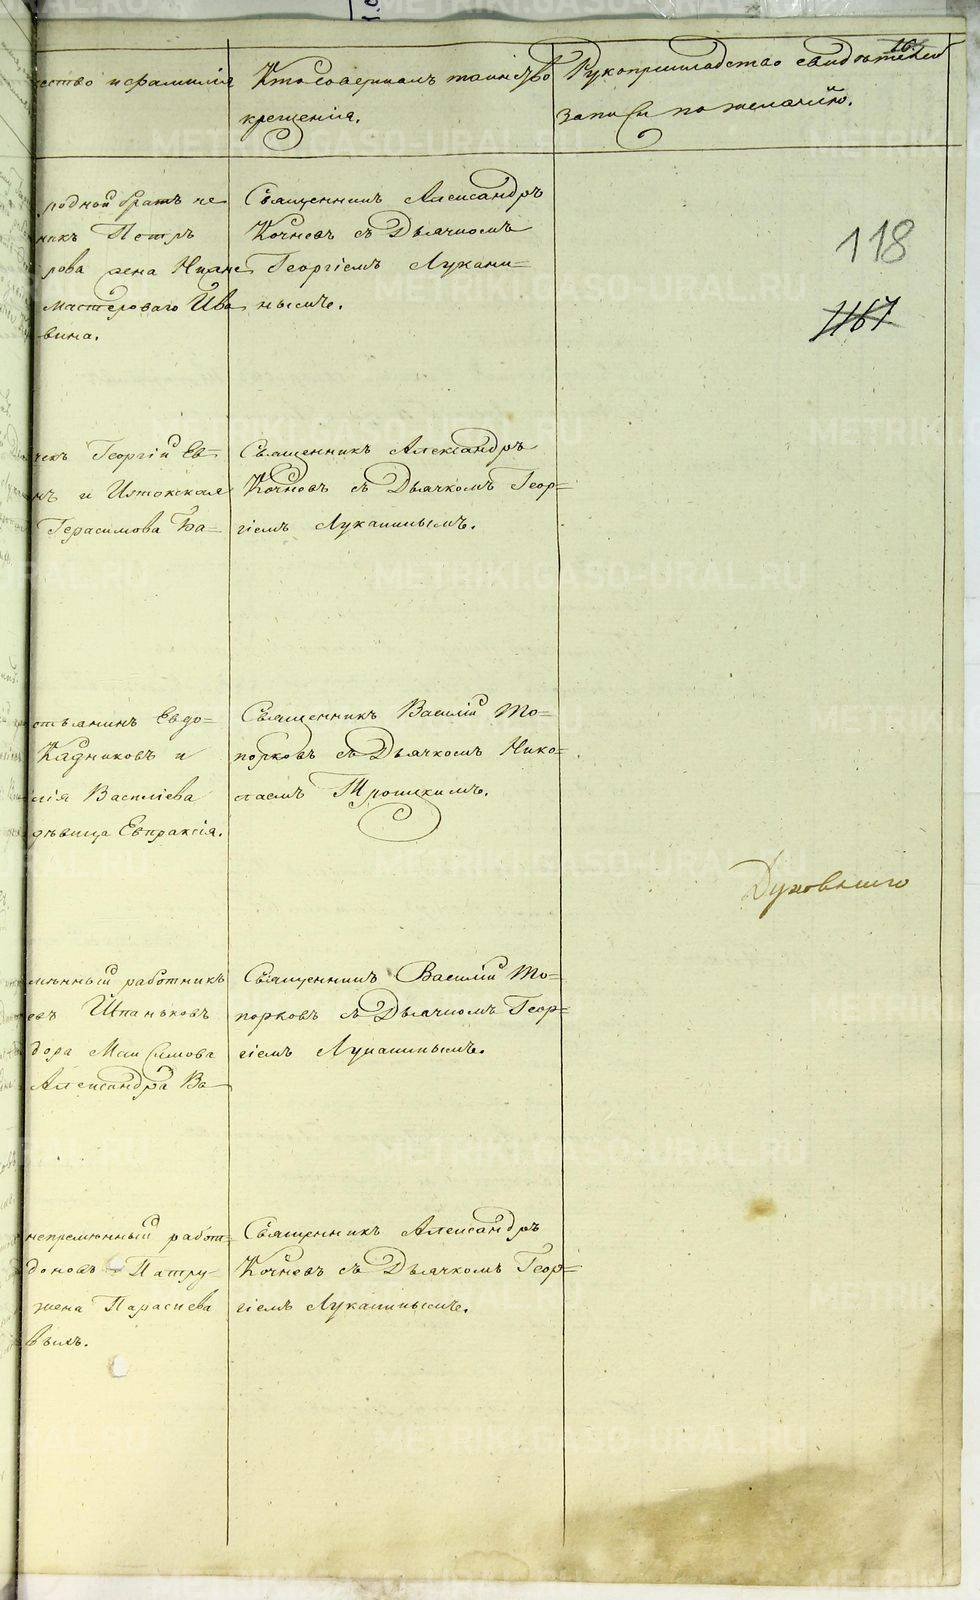 ество и фамилія
Кто совершалъ таинство
крещенія.
Рукоприкладство свидѣтелей
записи по желанію.
родной братъ че
никъ Петръ
рова жена
мастероваго Ива
вина.
Священникъ Александръ
Кочневъ съ Дьячкомъ
Георгіемъ Лукани-
нымъ.
118
1167
чекъ Георгій Ев-
нъ и Истокская
Герасимова Ба-
Священникъ Александръ
Кочневъ съ Дьячкомъ Геор-
гіемъ Луканинымъ.
стьянинъ Евдо-
Кадниковъ и
лія Василіева
дѣвица Евпраксія.
Священникъ Василій То-
порковъ съ Дьячкомъ Нико-
лаемъ Троицкимъ.
Духовнаго
мѣнный работникъ
евъ Шпаньковъ
дора Максимова
Александра Ва
Священникъ Василій То-
порковъ съ Дьячкомъ Геор-
гіемъ Луканинымъ.
непремѣнный работ-
доновъ Патру-
жена Параскева
выхъ.
Священникъ Александръ
Кочневъ съ Дьячкомъ Геор-
гіемъ Луканинымъ.
METRIKI.GASO-URAL.RU